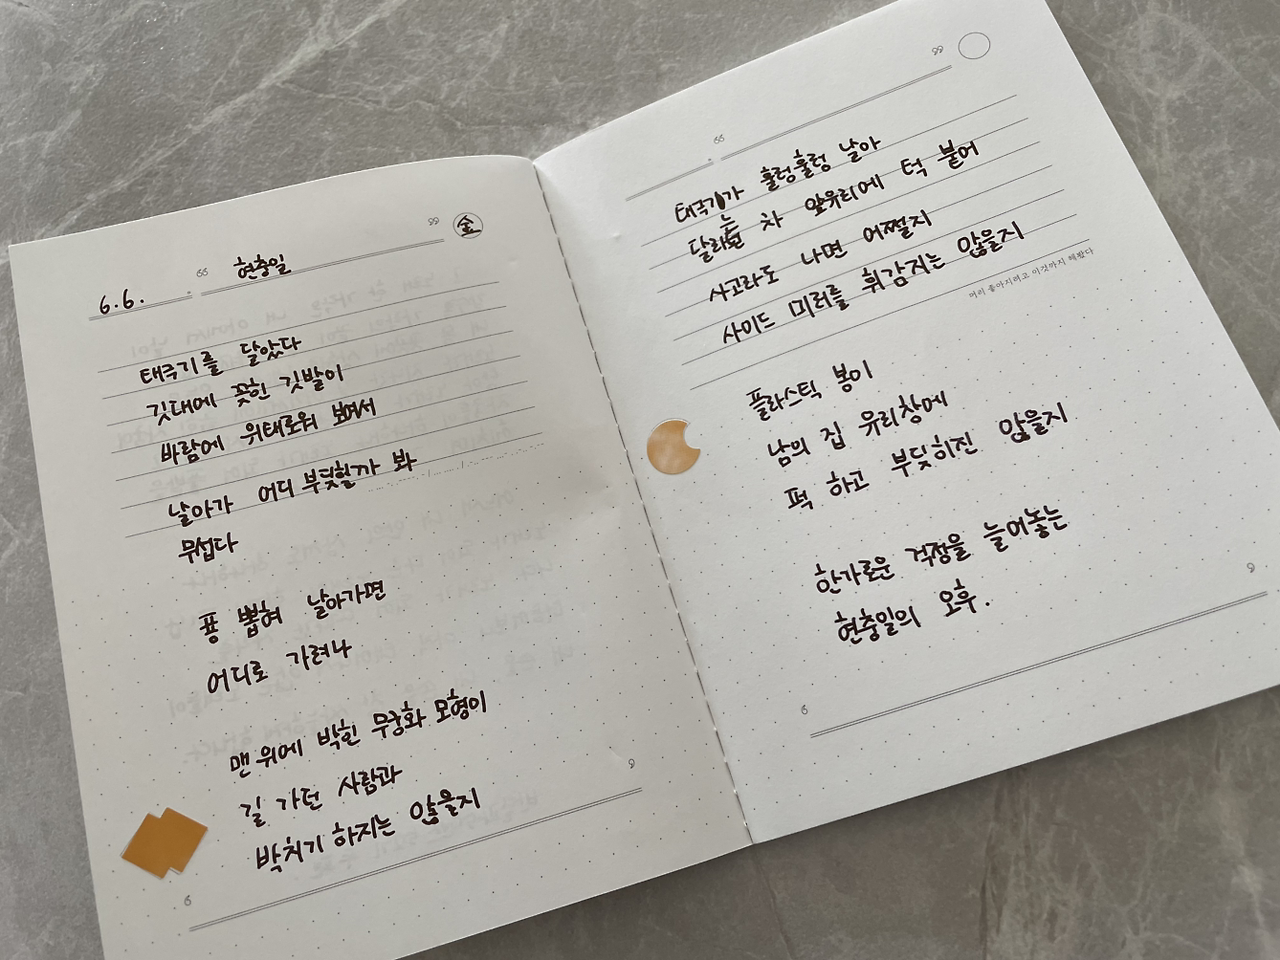 6.6. 현충일 金
태극기를 달았다
깃대에 꽂힌 깃발이
바람에 위태로워 보여서
날아가 어디 부딪힐까 봐
무섭다
푱 뽑혀 날아가면
어디로 가려나
맨 위에 박힌 무궁화 모형이
길 가던 사람과
박치기 하지는 않을지
태극기가 훌렁훌렁 날아
달리는 차 앞유리에 턱 붙어
사고라도 나면 어쩔지
사이드 미러를 휘감지는 않을지
머리 좋아지려고 이것까지 해봤다
플라스틱 봉이
남의 집 유리창에
퍽 하고 부딪히진 않을지
한가로운 걱정을 늘어놓는
현충일의 오후.